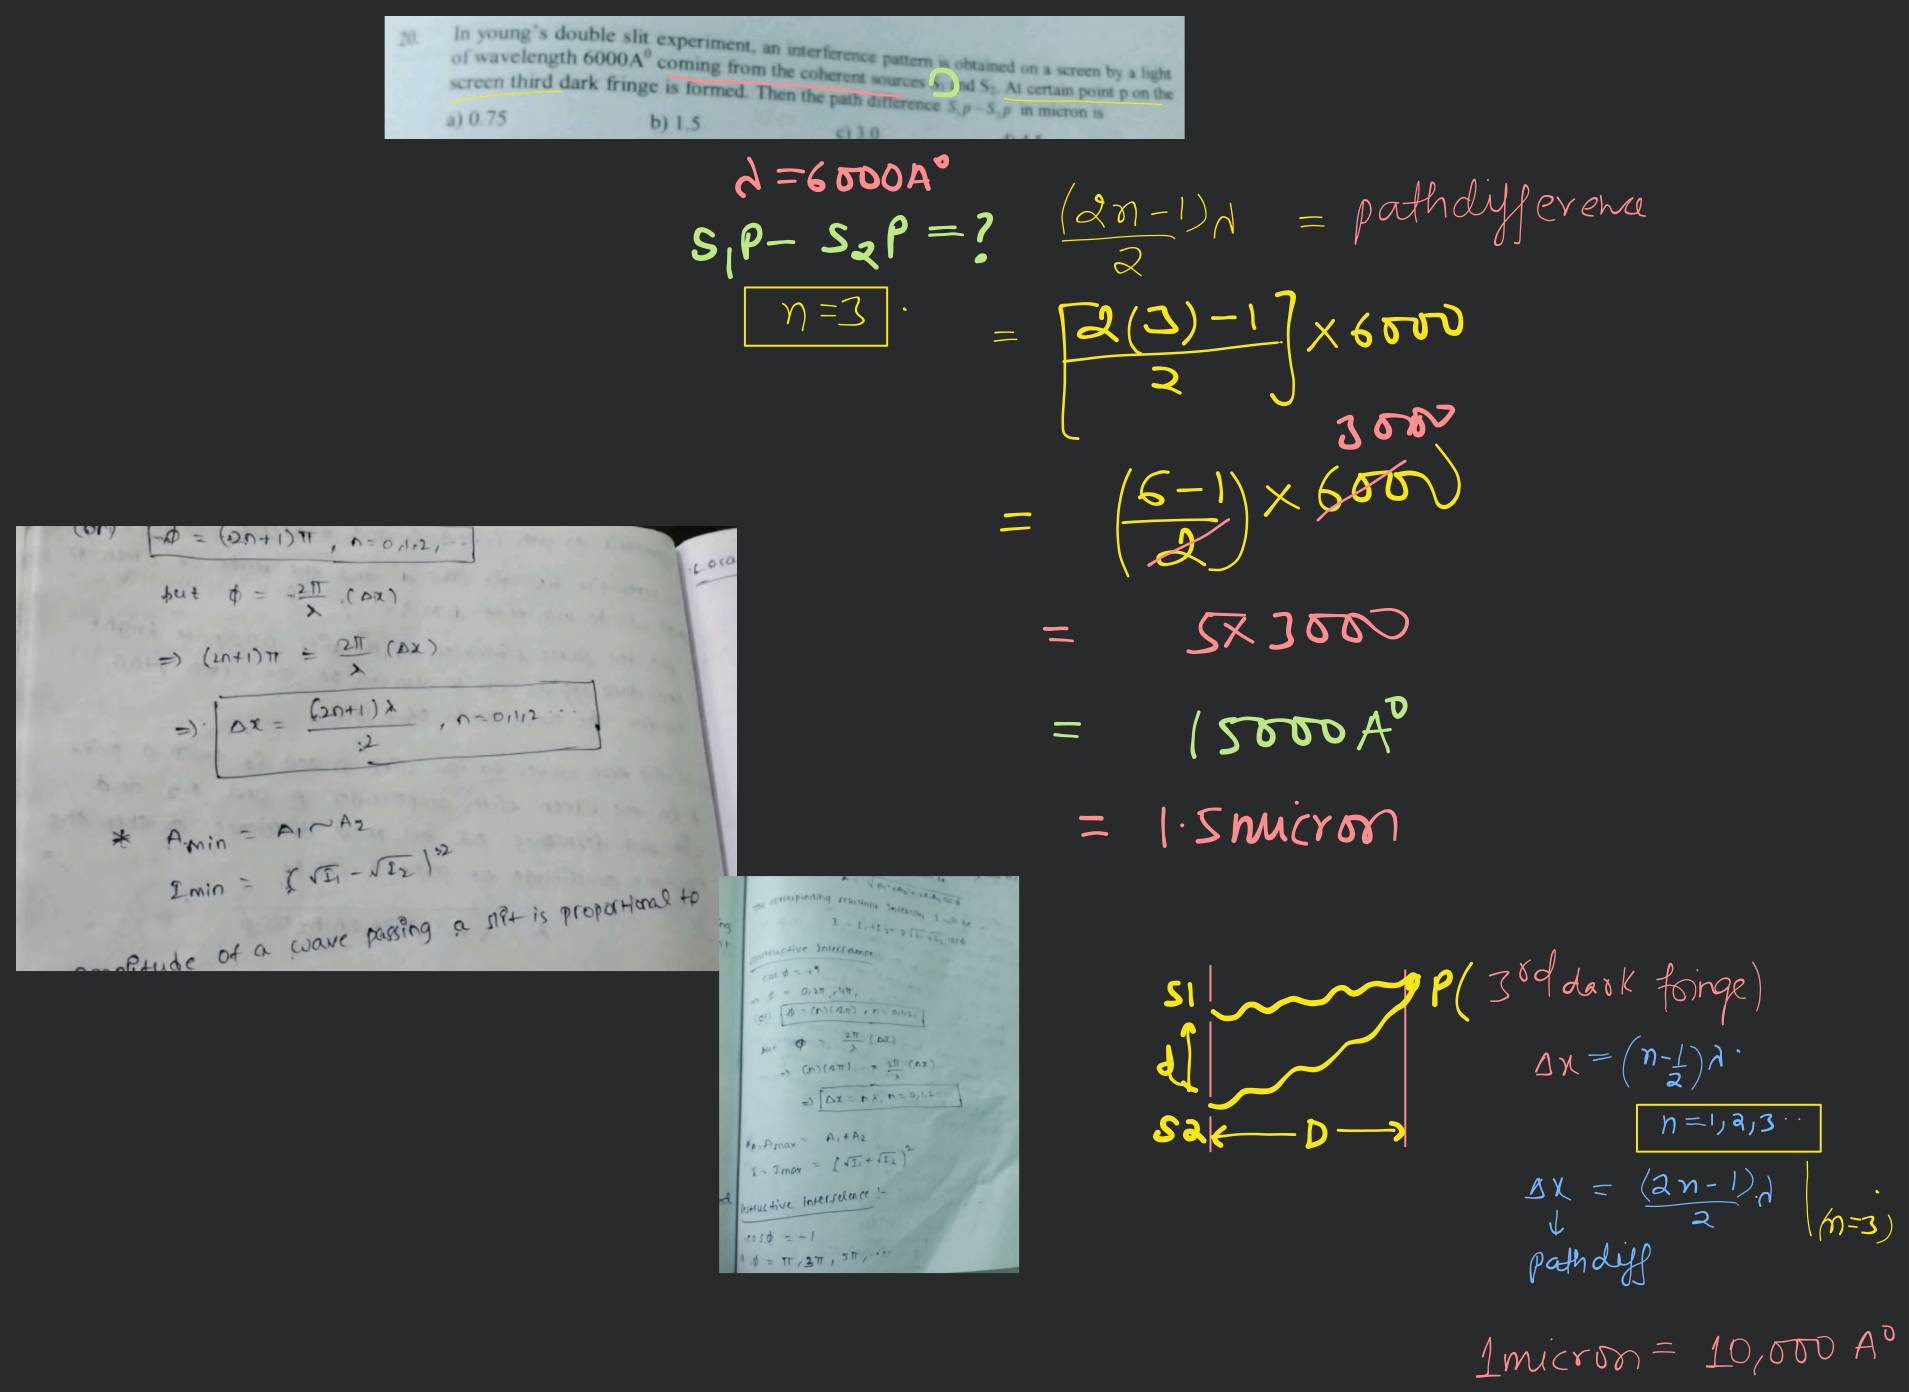 20. In young's double slit experiment, an interference pattern is obtained on a screen by a light
of wavelength 6000A⁰ coming from the coherent sources S₁ and S₂. At certain point p on the
screen third dark fringe is formed. Then the path difference S₁p – S₂p in micron is
a) 0.75 b) 1.5 c) 3.0
λ = 6000A⁰
S₁P – S₂P = ?
n = 3
(2n-1)λ/2 = pathdifference
= [2(3)-1/2] × 6000
3000
= (6-1/2) × 6000
= 5 × 3000
= 15000A⁰
= 1.5 micron
(or) ϕ = (2n+1)π, n=0,1,2, ...
but ϕ = 2π/λ .(Δx)
⇒ (2n+1)π = 2π/λ (Δx)
⇒ Δx = (2n+1)λ/2 , n=0,1,2 ...
* Amin = A₁~A₂
Imin = (√I₁ - √I₂)²
amplitude of a wave passing a slit is proportional to
Loca
The corresponding resultant intensity I will be
constructive Interference
cos ϕ = +1
ϕ = 0, 2π, 4π,
(or) ϕ = (n)(2π), n=0,1,2,
but ϕ = 2π/λ (Δx)
⇒ (n)(2π) = 2π/λ (Δx)
⇒ Δx = nλ, n=0,1,2..
Amax = A₁+A₂
I = Imax = (√I₁ + √I₂)²
estructive interference :-
cosϕ = -1
ϕ = π, 3π, 5π, ....
S1 P( 3rd dark fringe)
d
S2 D
Δx = (n-1/2)λ.
n = 1,2,3 ..
Δx = (2n-1).λ/2 (n=3)
↓
path diff
1micron = 10,000 A⁰